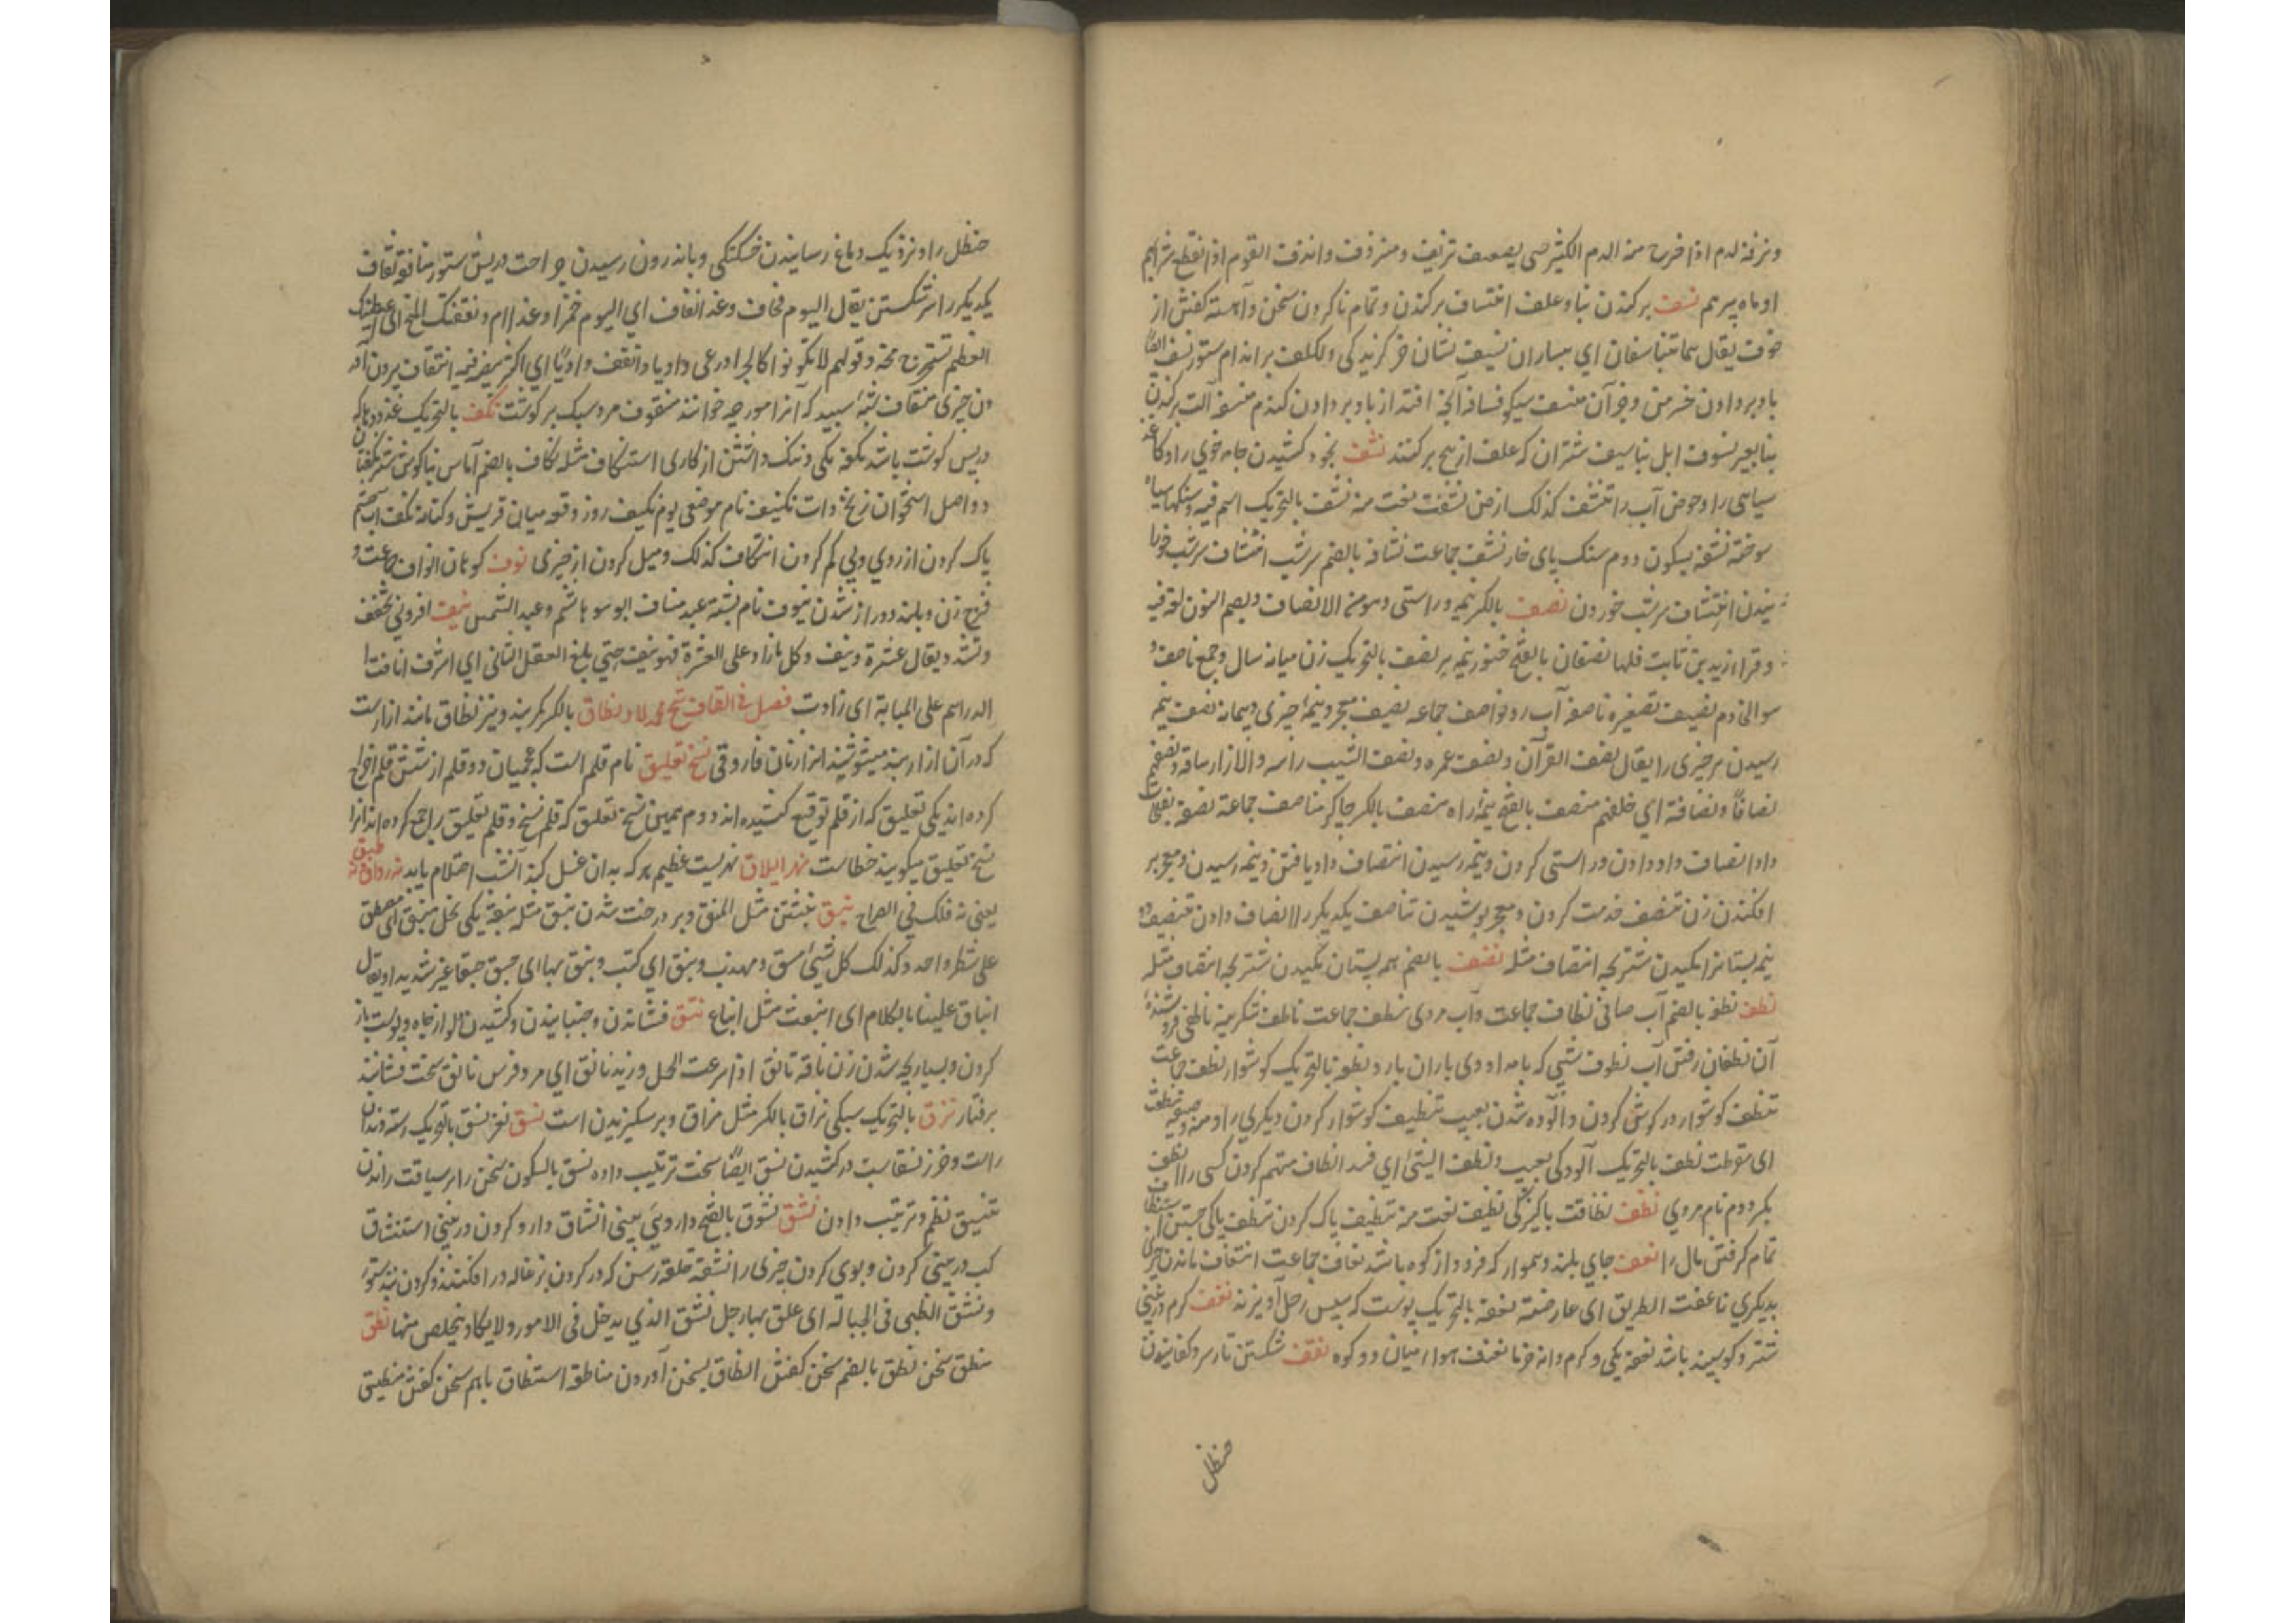 ونزفه الدم اذا خرج منه الدم الکثیر حتی یضعف نزیف ومنزوف وانزف القوم اذا نقطع شرابهم
او ماه پیر هم نسف برکندن بنا و علف انتساف برکندن و تمام ناکردن سخن و آهسته کفتن از
خوف یقال هما یتناسفان ای یساران نسیف نشان خر کزیدکی ولکلف بر اندام ستور نسف ایضا
باد بر دادن خرمن وجو آن منسف نسافه آنچه افتد از باد بر دادن کندم منسفه آلت برکندن
بنا بعیر نسوف ابل مناسیف شتران که علف از بیخ برکنند نشف بخود کشیدن جامه خوی را و کاغذ
سیاهی را و حوض آب را تنشف کذلک ارض نشفة نعت منه نشف بالتحریک اسم فیه و سنکهای سیاه
سوخته نشفه بسکون دوم سنک پای خار نشف جماعت نشافه بالضم سرشیر انتشاف سرشیر خورا
نیدن انتشاف سرشیر خوردن نصف بالکسر نیمه و راستی و هو من الانصاف وبضم النون لغة فیه
وقراء زید بن ثابت فلها النصف نصفان بالفتح خنور نیمه پر نصف بالتحریک زن میانه سال و جمع ناصف و
سوالی دوم نصیف تصغیره ناصفه آب رود نواصف جماعه نصیف معجر و نیمه چیزی و پیمانه نصف بنیمه
رسیدن هر چیزی را یقال نصف القرآن ونصف عمره ونصف الشیب راسه والازار ساقه ونصفهم
نصافا ونصافة ای خدمهم منصف بالفتح نیمه راه منصف بالکسر چاکر مناصف جماعة نصفة بفتحتان
داد انصاف داد دادن و راستی کردن و بنیمه رسیدن انتصاف داد یافتن و بنیمه رسیدن و معجر بر
افکندن زن تنصف خدمت کردن و معجر پوشیدن تناصف یکدیکر را انصاف دادن تنصیف دو
نیمه بستانرا مکیدن شتربچه انتضاف مثله نضف بالضم همه پستان مکیدن شتربچه انتضاف مثله
نطف نطفه بالضم آب صافی نطاف جماعت و آب مردی نطف جماعت ناطف شکرینه ناطفی فروشنده
آن نطفان رفتن آب نطوف شبی که بامداد وی باران بارد نطفه بالتحریک کوشوار نطف جماعت
تنطف کوشوار در کوش کردن و آلوده شدن بعیب تنطیف کوشوار کردن دیکری را ومنه وصیفة منطفة
ای مقرطة نطف بالتحریک آلودکی بعیب ونطف الشیء ای فسد انطاف متهم کردن کسی را نطف
بکسر دوم نام مردی نظف نظافت پاکیزکی نظیف نعت منه تنظیف پاک کردن تنظف پاکی جستن استنظاف
تمام کرفتن مال را نعف جای بلند و هموار که فرود از کوه باشد نعاف جماعت انتعاف ماندن چیزی
بدیکری ناعفت الطریق ای عارضته نعفة بالتحریک پوست که سپس رحل آویزند نغف کرم در بینی
شتر و کوسپند باشد نغفه یکی و کرم دانه خرما نفنف هوا میان دو کوه نقف شکستن تارسر و کفانیدن
حنظل
حنظل را و نزدیک دماغ رسانیدن خستکی و باندرون رسیدن جراحت در پشت ستور مناقفة نقاف
یکدیکر را سر شکستن یقال الیوم قحاف وغدا نقاف ای الیوم خمر وغدا امر ونقفتک المخ ای اعطیتک
العظم تستخرج مخه وقولهم لا تکونوا کالجراد رعی وادیا وانقف وادیا ای اکثر بیضه فیه انتقاف بیرون آور
دن چیزی منقاف شبه سپید که آنرا مورچه خوانند منقوف مرد سبک بر کوشت نکف بالتحریک غدودها که
در پس کوشت باشد نکفه یکی و ننک داشتن از کاری استنکاف مثله نکاف بالضم آماس بناکوش شتر نکفتان
دو اصل استخوان زنخ ذات نکیف نام موضعی یوم نکیف روز وقعه میان قریش و کنانه نکف اشک چشم
پاک کردن از روی و پی کم کردن انتکاف کذلک و میل کردن از چیزی نوف کوهان انواف جماعت و
فرج زن و بلند و دراز شدن منوف نام بتی عبد مناف ابو هاشم وعبد الشمس نیف افزونی یخفف
ویشدد یقال عشرة ونیف وکل مازاد علی العشرة فهو نیف حتی یبلغ العقد الثانی ای اشرف انافت
الدراهم علی المایة ای زادت فصل فی القاف نطاق بالکسر کمربند و نیز نطاق مانند ازارست
که در آن ازاربند میپوشند از زنان فاروقی نسخ تعلیق نام قلم است که عجمیان دو قلم از شش قلم اخراج
کرده اند یکی تعلیق که از قلم توقیع کشیده اند دوم همین نسخ تعلیق که قلم نسخ و قلم تعلیق را جمع کرده اند آنرا
نسخ تعلیق میکویند خطاست نهر ایلاق نهریست عظیم هر که بدان غسل کند آنشب احتلام یابد نه رواق نه طبق
یعنی نه فلک فی الصراح نبق نبشتن مثل النمق وبر درخت شدن نبق مثله نبقة یکی نخل منبق ای مصطف
علی شطر واحد وکذلک کل شیء متسق ومهذب ونبق ای کتب ونبق بها ای حبق حبقا غیر شدید ویقال
انباق علینا بالکلام ای انبعث مثل انباع نتق فشاندن و جنبانیدن و کشیدن دلو از چاه و پوست باز
کردن و بسیار بچه شدن زن ناقة ناتق اذا سرعت الحمل وزند ناتق ای مر وفرس ناتق سخت فشاننده
برفتار نزق بالتحریک سبکی نزاق بالکسر مثل مزاق و بر سکیزیدن اسب نسق نغز نسق بالتحریک رسته دندان
راست و خرز نسقا ست در کشیدن نسق ایضا سخت ترتیب داده نسق بالسکون سخن را بر سیاقت راندن
تنسیق نظم و ترتیب دادن نشق نشوق بالفتح داروی بینی انشاق دارو کردن در بینی استنشاق
آب در بینی کردن و بوی کردن چیزی را نشقه حلقه رسن که در کردن بزغاله در افکنند و کردن بند ستور
ونشق الظبی فی الحباله ای علق بها رجل نشق الذی یدخل فی الامور ولا یکاد یتخلص منها نطق
منطق سخن نطق بالضم سخن کفتن انطاق بسخن آوردن مناطقة استنطاق باهم سخن کفتن منطیق